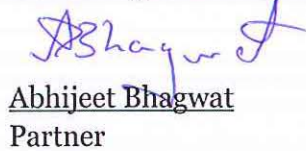 ABhagwat
Abhijeet Bhagwat
Partner